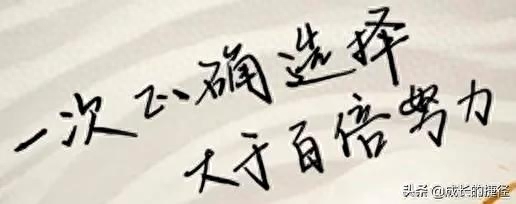 一次正确选择
大于百倍努力
头条 @成长的捷径